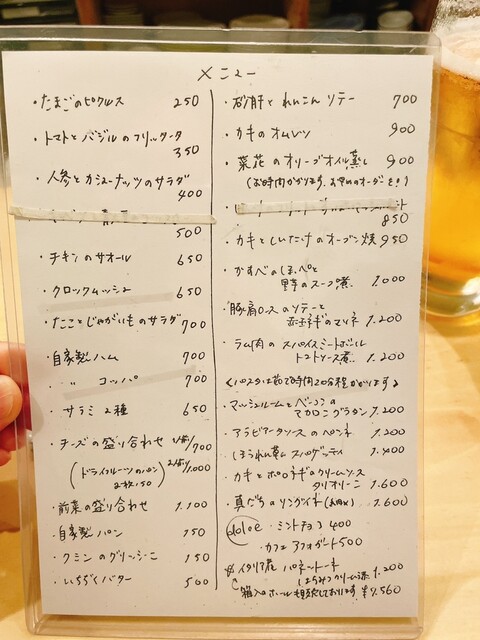 メニュー
・たまごのピクルス 250
・トマトとバジルのフリッタータ
350
・人参とカシューナッツのサラダ
400
500
・チキンのサオール 650
・クロックムッシュ 650
・たことじゃがいものサラダ 700
・自家製ハム 700
・〃 コッパ 700
・サラミ2種 650
・チーズの盛り合わせ 700
(ドライフルーツのパン 2枚150) 1.000
・前菜の盛り合わせ 1.100
・自家製パン 150
・クミンのグリッシーニ 150
・いちぢくバター 500
・砂肝とれんこんソテー 700
・カキのオムレツ 900
・菜花のオリーブオイル蒸し 900
(お時間かかります。お早めのオーダーを!)
850
・カキとしいたけのオーブン焼 950
・かすべのほほと
野菜のスープ煮 1.000
・豚肩ロースのソテーと
赤玉ネギのマリネ 1.200
・ラム肉のスパイスミートボール
トマトソース煮 1.200
<パスタは前で時間20分程かかります>
・マッシュルームとベーコンの
マカロニグラタン 1.200
・アラビアータソースのペンネ 1.200
・ほうれん草のスパゲッティ 1.400
・カキとポロネギのクリームソース
タリオリーニ 1.600
・真だちのリングイネ 1.600
dolce ・ミントチョコ 400
・カフェアフォガート 500
イタリア産 パネットーネ
(はちみつクリーム添え) 1.200
箱入りホール相談しております ¥7.560